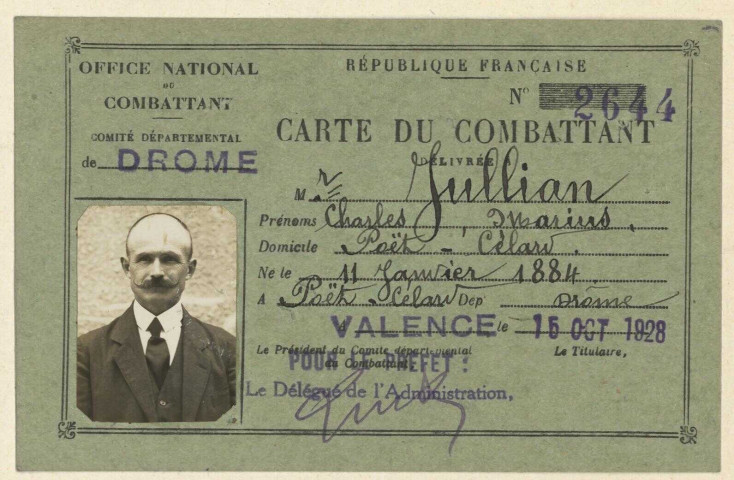 OFFICE NATIONAL
DU
COMBATTANT
COMITÉ DÉPARTEMENTAL
de DROME
RÉPUBLIQUE FRANÇAISE
N° 2644
CARTE DU COMBATTANT
DÉLIVRÉE
M r Jullian
Prénoms Charles, Marius,
Domicile Poët-Célard.
Ne le 11 Janvier 1884
A Poët-Célard Dep Drôme
A VALENCE le 15 OCT 1928
Le Président du Comite départemental
du Combattant,
Le Titulaire,
POUR LE PREFET :
Le Délégué de l'Administration,